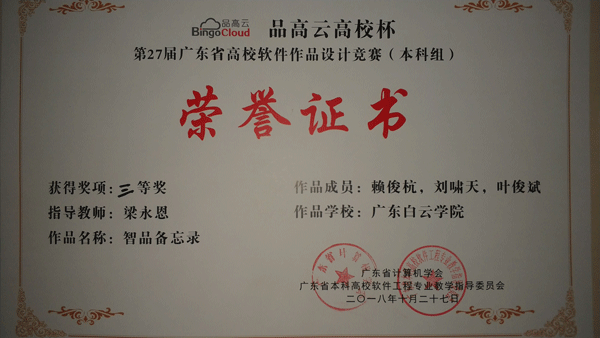 品高云
BingoCloud
品高云高校杯
第27届广东省高校软件作品设计竞赛（本科组）
荣誉证书
获得奖项：三等奖
作品成员：赖俊杭，刘啸天，叶俊斌
指导教师：梁永恩
作品学校：广东白云学院
作品名称：智品备忘录
广东省计算机学会
广东省本科高校软件工程专业教学指导委员会
二〇一八年十月二十七日